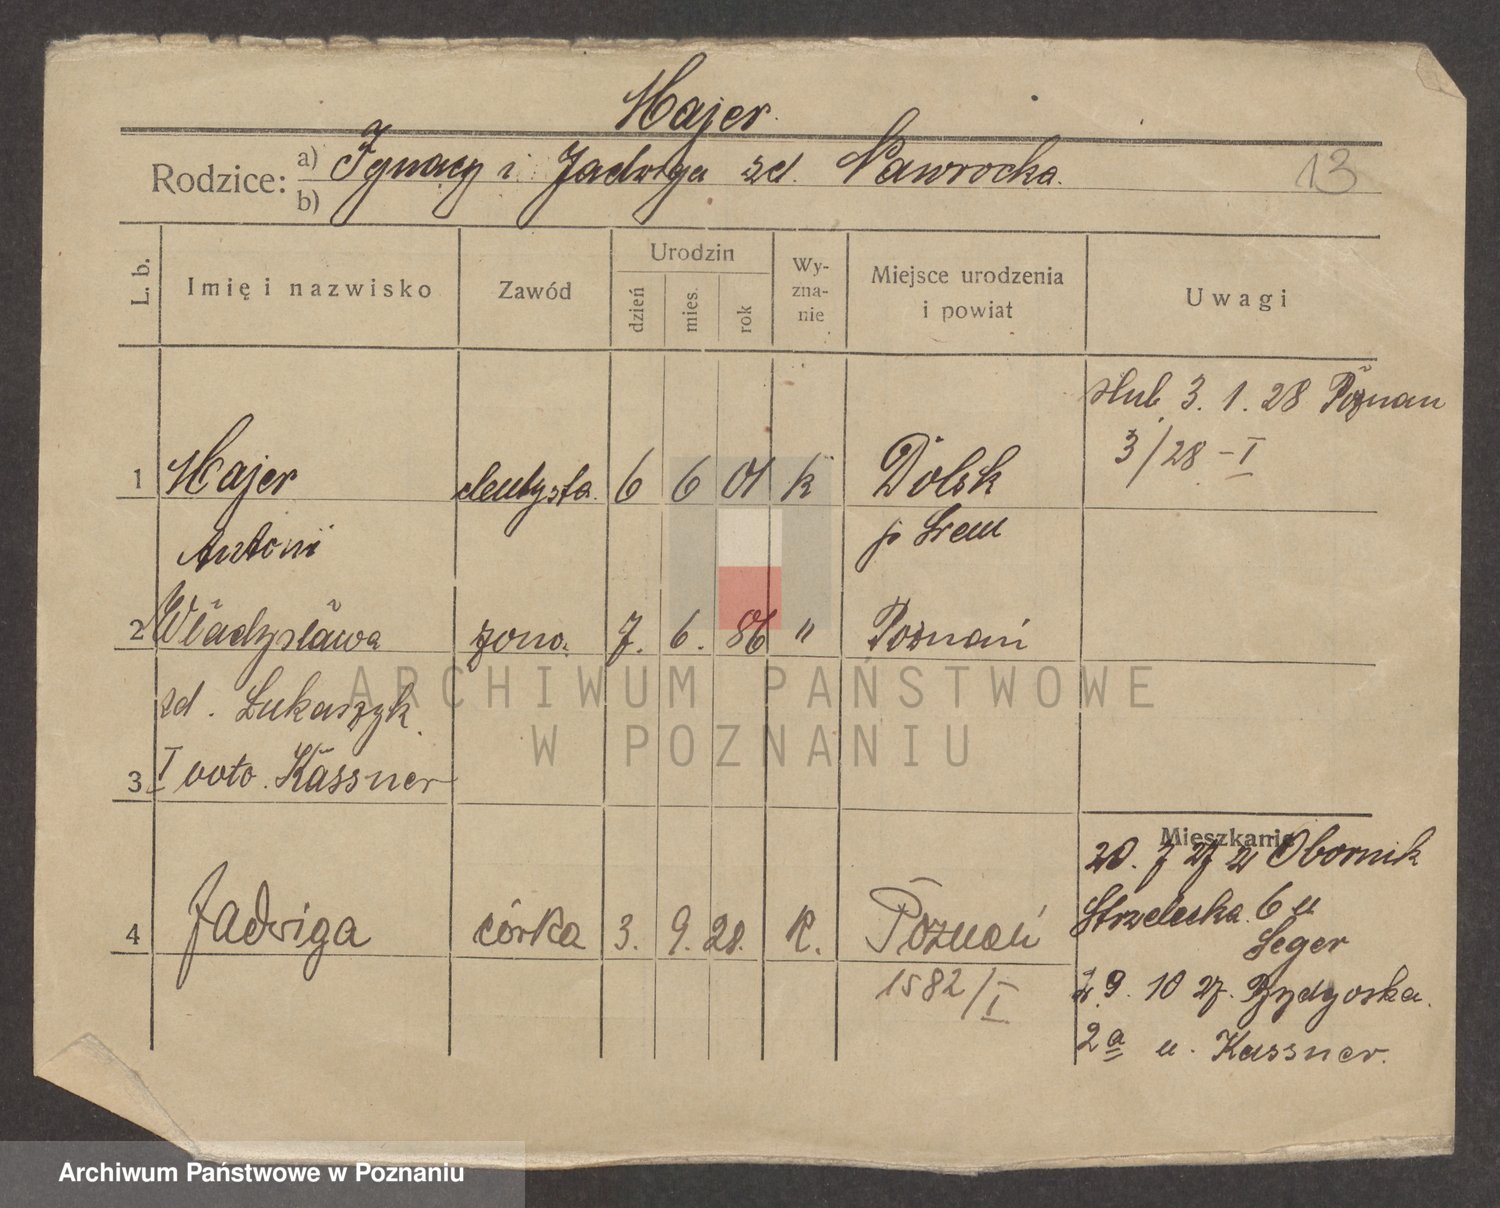 Majer
Rodzice: a) Ignacy i Jadwiga zd. Nawrocka. 13
b)
L. b. Imię i nazwisko Zawód Urodzin dzień mies. rok Wy-zna-nie Miejsce urodzenia i powiat Uwagi
ślub 3. 1. 28 Poznań
3/28 - I
1 Majer dentysta. 6 6 01 k Dolsk
Antoni p Śrem
2 Władysława żona. 7. 6. 86 " Poznań
zd. Łukaszyk.
3 I voto. Kassner
Mieszkanie
20. 7 27 z Obornik
Strzelecka. 6 u
Seger
4 Jadwiga córka 3. 9. 28. K. Poznań
1582/I
9. 10 27. Bydgoska.
2a u. Kassner.
ARCHIWUM PAŃSTWOWE
W POZNANIU
Archiwum Państwowe w Poznaniu